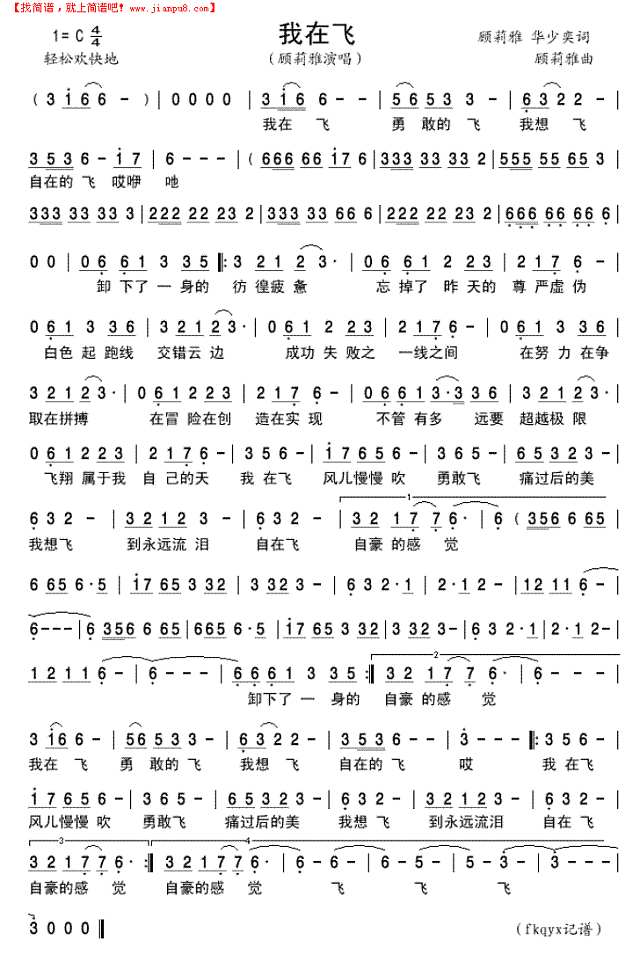 【找简谱，就上简谱吧！www.jianpu8.com】
1= C 4/4 我在飞 顾莉雅 华少奕词
轻松欢快地 （顾莉雅演唱） 顾莉雅曲
( 3 1 6 6 - ) | 0 0 0 0 | 3 1 6 6 - | 5 6 5 3 3 - | 6 3 2 2 - |
我在 飞 勇 敢的 飞 我想 飞
3 5 3 6 - 1 7 | 6 - - - | ( 666 66 1 7 6 | 333 33 33 2 | 555 55 65 3 |
自在的 飞 哎咿 吔
333 33 33 2 | 222 22 23 2 | 333 33 66 6 | 222 22 23 2 | 666 66 66 6 ) |
0 0 | 0 6 6 1 3 3 5 ‖: 3 3 2 1 2 3 · | 0 6 6 1 2 2 3 | 2 1 7 6 - |
卸 下了 一 身的 彷 徨疲 惫 忘 掉了 昨 天的 尊 严虚 伪
0 6 1 3 3 6 | 3 2 1 2 3 · | 0 6 1 2 2 3 | 2 1 7 6 - | 0 6 1 3 3 6 |
白色 起 跑线 交错云 边 成功 失 败之 一线之间 在努 力 在争
3 2 1 2 3 · | 0 6 1 2 2 3 | 2 1 7 6 - | 0 6 6 1 3 · 3 3 6 | 5 3 2 3 - |
取在拼搏 在冒 险在创 造在实 现 不管 有多 远要 超越极 限
0 6 1 2 2 3 | 2 1 7 6 - | 3 6 5 - | 1 7 6 5 6 - | 3 6 5 - | 6 5 3 5 3 - |
飞翔 属于我 自 己的天 我 在飞 风儿慢慢 吹 勇敢飞 痛过后的美
6 3 2 - | 3 2 1 2 3 - | 6 3 2 - | 3 2 1 7 7 6 · - | 6 ( 3 5 6 6 6 5 |
我想飞 到永远流 泪 自在飞 自豪的感 觉
6 6 5 6 · 5 | 1 7 6 5 3 3 2 | 3 - 1 2 | 6 3 2 · 1 | 2 - - - | 1 2 1 1 6 - |
6 - - - | 6 3 5 6 6 6 5 | 6 6 5 6 · 5 | 1 7 6 5 3 3 2 | 3 - 1 2 | 6 3 2 · 1 | 2 · 1 2 - |
1 2 1 2 | 6 - - - | 6 - - ) | 6 6 6 1 3 3 5 :‖ 3 2 1 7 7 6 · | 6 - - |
卸下了 一 身的 自豪 的感 觉
3 1 6 - | 5 6 5 3 3 - | 6 3 2 2 - | 3 5 3 6 - | 3 - - ‖: 3 6 5 - |
我在 飞 勇 敢的 飞 我想 飞 自在的 飞 哎 我 在飞
1 7 6 5 6 - | 3 6 5 - | 6 5 3 5 3 - | 6 3 2 - | 3 2 1 2 3 - | 6 3 2 - |
风儿慢慢 吹 勇敢飞 痛过后的美 我想飞 到永远流泪 自在飞
3 2 1 7 7 6 · :‖ 3 2 1 7 7 6 · - | 6 · - 5 | 5 - 3 - | 3 - - - |
自豪的感 觉 自豪的感 觉 飞 飞 飞
3 0 0 0 ‖ （fkqyx记谱）